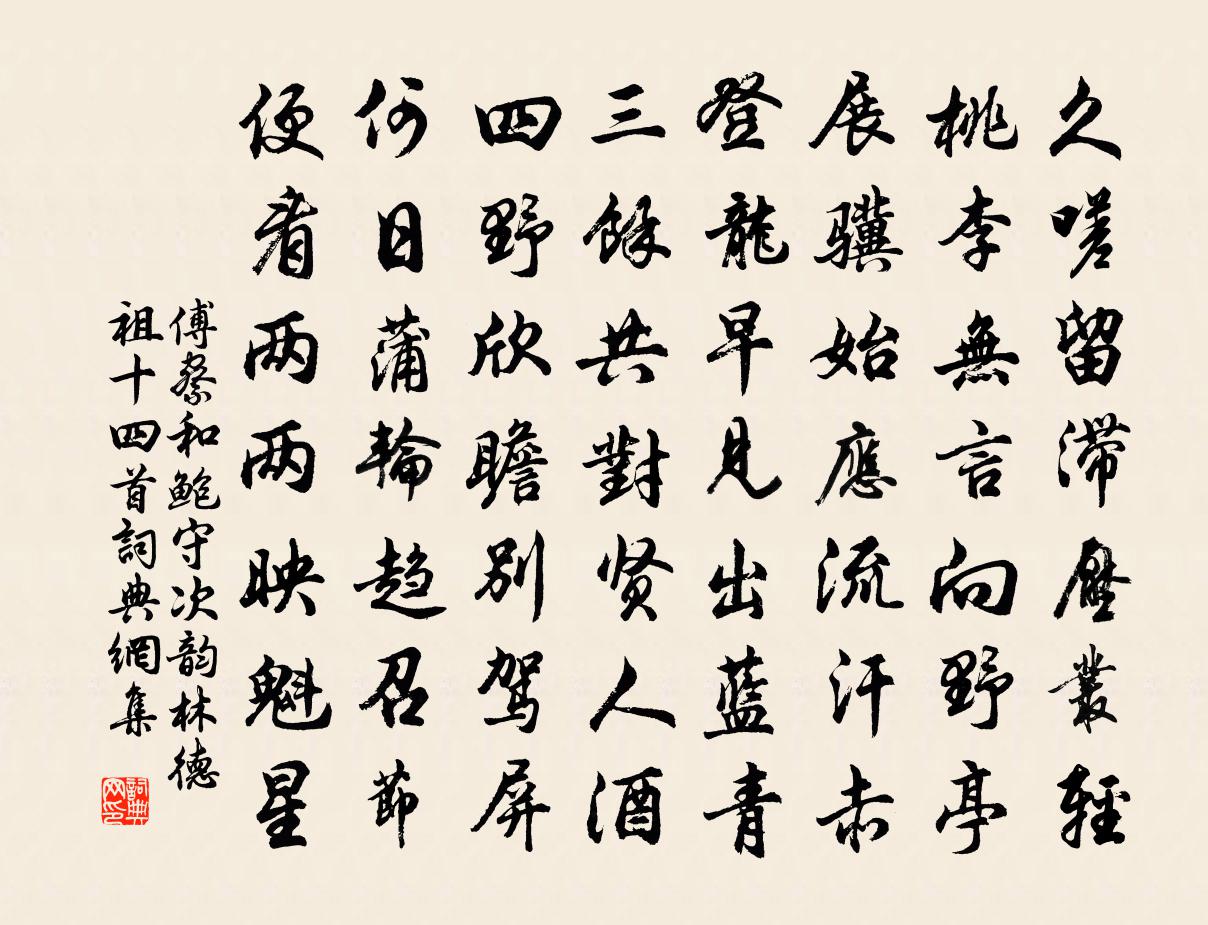 久嗟留滞壓叢輕
桃李無言向野亭
展骥始應流汗赤
登龍早見出藍青
三餘共對贤人酒
四野欣瞻别駕屏
何日蒲輪趋召節
便看两两映魁星
傅察和鲍守次韵林德
祖十四首詞典網集
詞典
网印